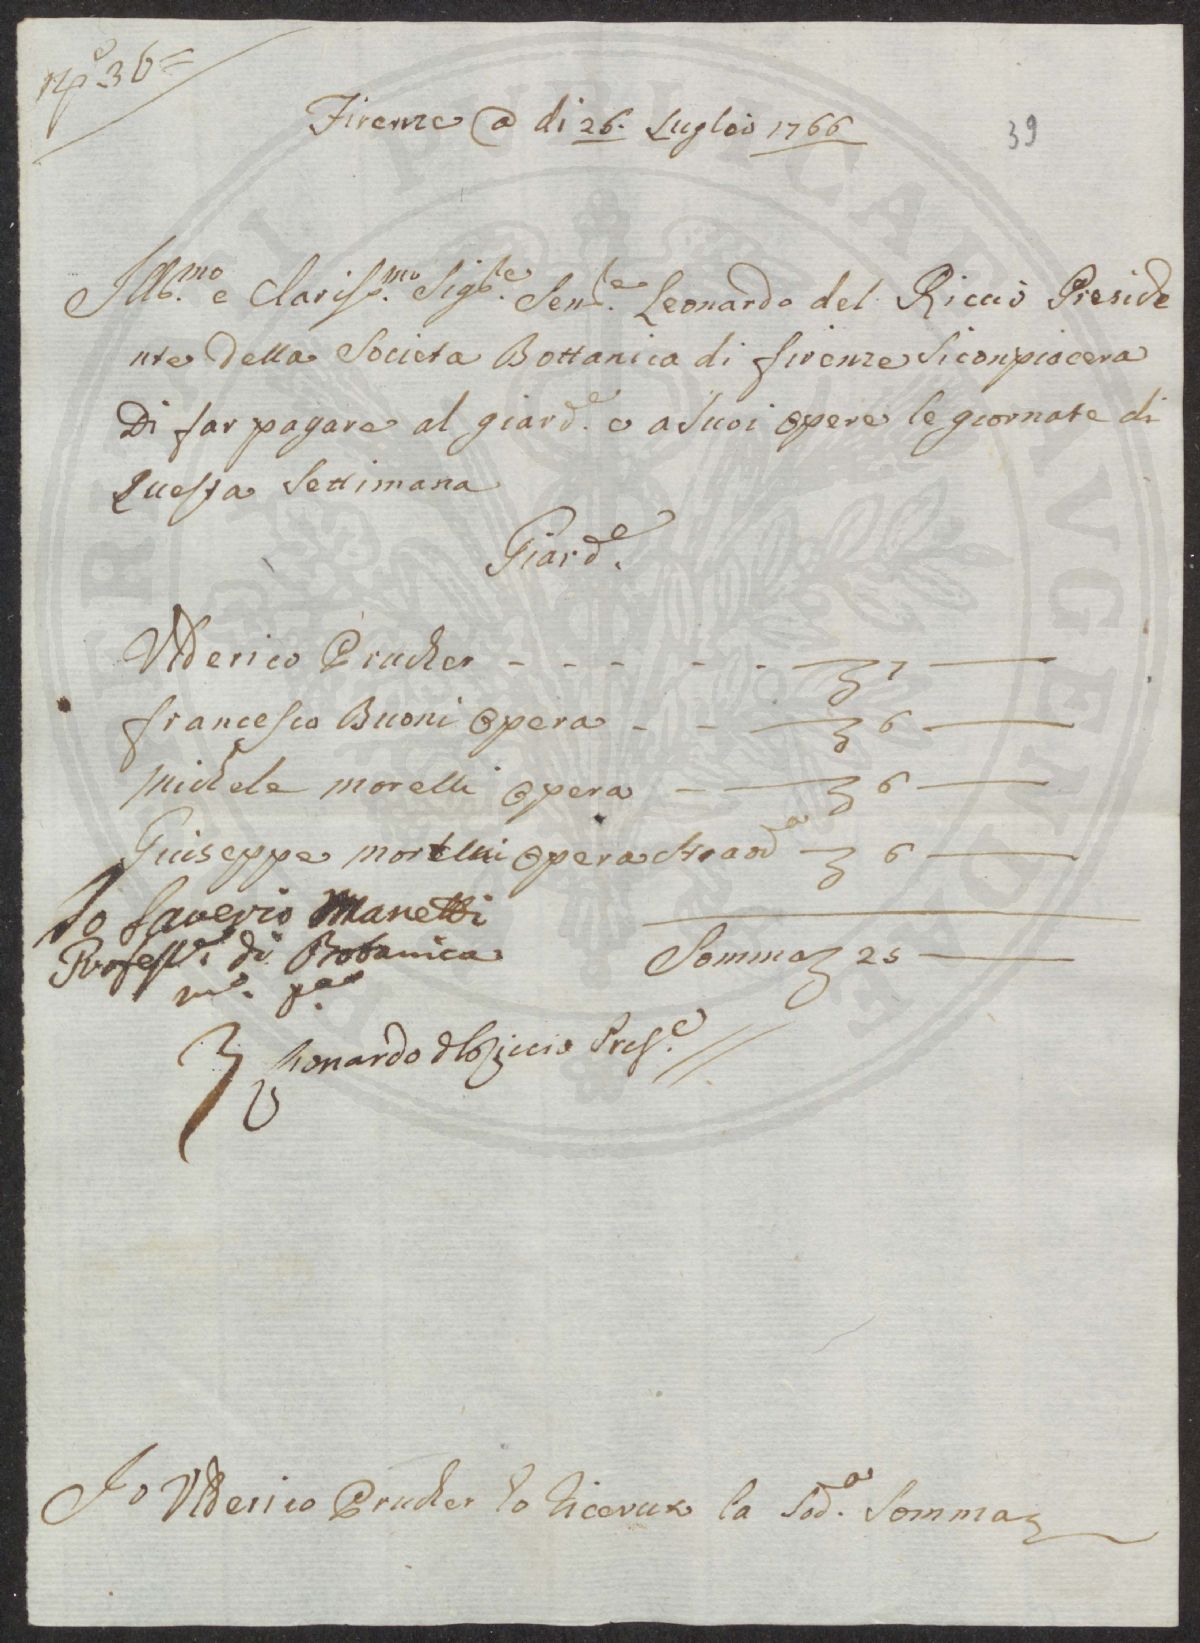 Nº 36=
Firenze a di 26. Luglio 1766
39
Illmo. e Clarissmo. Sigre. Senre. Leonardo del Riccio Preside
nte della Societa Bottanica di firenze Si conpiacera
Di far pagare al giarde. e a Suoi Opere le giornate di
Questa Settimana
Giarde.
Uldericо Prucker - - - - - 7
francesco Buoni Opera - - 6
Michele morelli opera - 6
Guiseppe morelli opera Straoda 6
Io Saverio Manetti
Professre. di Botanica
mo. ppa
Somma 25
Leonardo del Riccio Prese.
Io Ulderico Prucker ho Ricevuto la Soda. Somma